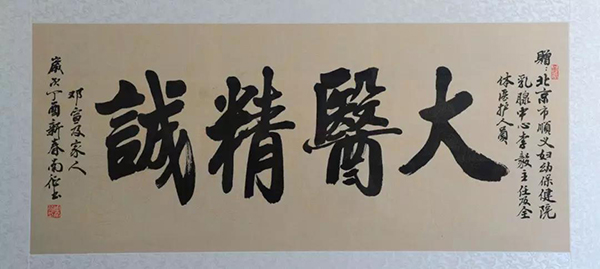 贈：北京市順义妇幼保健院
乳腺中心李毅主任及全
体医护人员
大醫精誠
邓宙及家人
歲次丁酉新春南征书